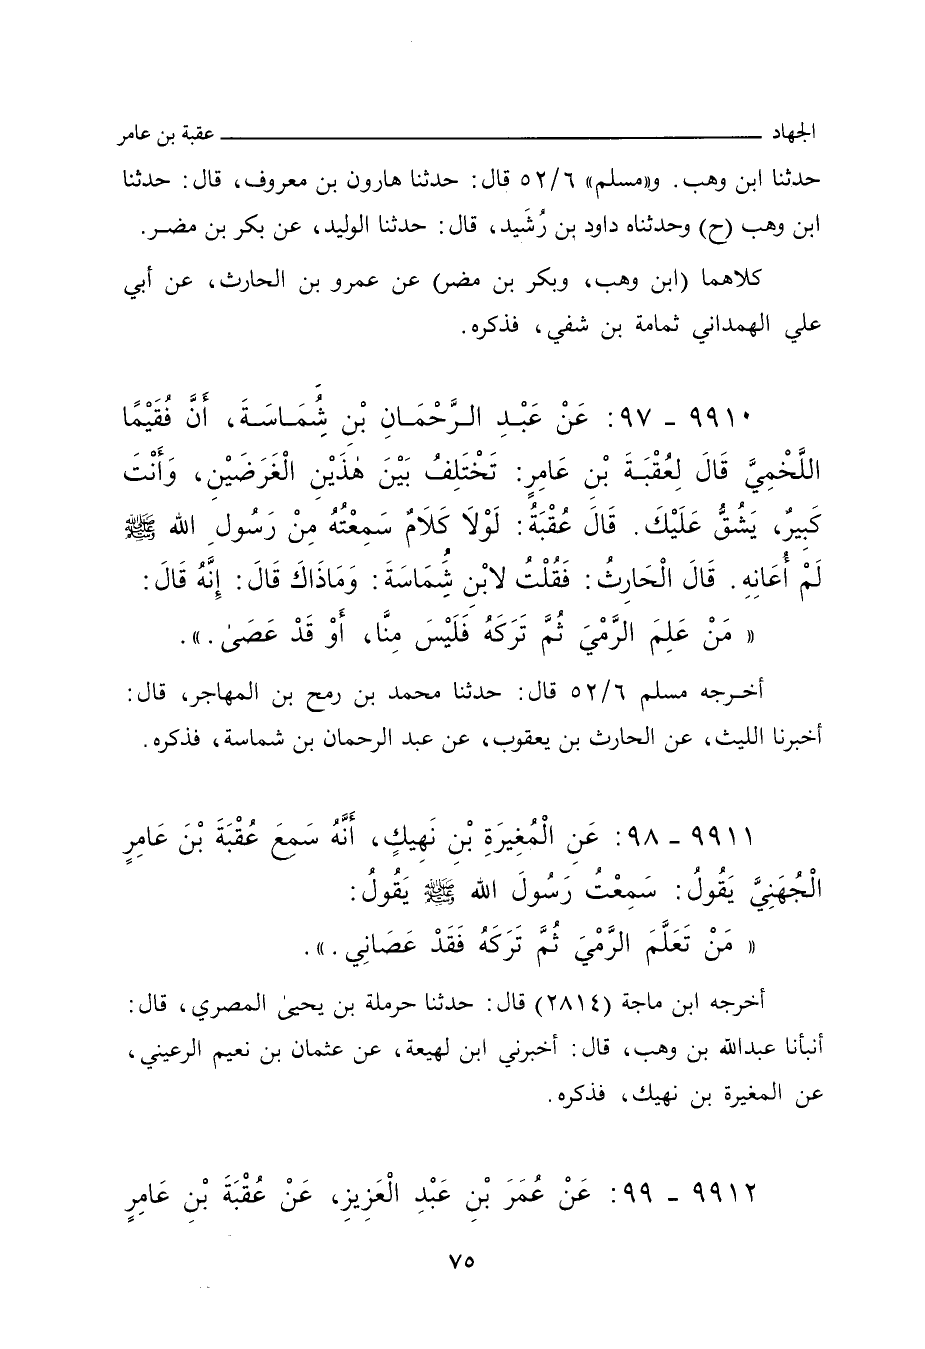 الجهاد ــــــــــــــــــــــــــــــــــــــــــــــــــ عقبة بن عامر
حدثنا ابن وهب. و«مسلم» ٥٢/٦ قال: حدثنا هارون بن معروف، قال: حدثنا
ابن وهب (ح) وحدثناه داود بن رُشَيد، قال: حدثنا الوليد، عن بكر بن مضر.
كلاهما (ابن وهب، وبكر بن مضر) عن عمرو بن الحارث، عن أبي
علي الهمداني ثمامة بن شفي، فذكره.
٩٩١٠ - ٩٧: عَنْ عَبْدِ الرَّحْمَانِ بْنِ شُمَاسَةَ، أَنَّ فُقَيْمًا
اللَّخْمِيَّ قَالَ لِعُقْبَةَ بْنِ عَامِرٍ: تَخْتَلِفُ بَيْنَ هٰذَيْنِ الْغَرَضَيْنِ، وَأَنْتَ
كَبِيرٌ، يَشُقُّ عَلَيْكَ. قَالَ عُقْبَةُ: لَوْلَا كَلَامٌ سَمِعْتُهُ مِنْ رَسُولِ الله ﷺ
لَمْ أُعَانِهِ. قَالَ الْحَارِثُ: فَقُلْتُ لابْنِ شُمَاسَةَ: وَمَاذَاكَ قَالَ: إِنَّهُ قَالَ:
« مَنْ عَلِمَ الرَّمْيَ ثُمَّ تَرَكَهُ فَلَيْسَ مِنَّا، أَوْ قَدْ عَصَىٰ.».
أخرجه مسلم ٥٢/٦ قال: حدثنا محمد بن رمح بن المهاجر، قال:
أخبرنا الليث، عن الحارث بن يعقوب، عن عبد الرحمان بن شماسة، فذكره.
٩٩١١ - ٩٨: عَنِ الْمُغِيرَةِ بْنِ نَهِيكٍ، أَنَّهُ سَمِعَ عُقْبَةَ بْنَ عَامِرٍ
الْجُهَنِيَّ يَقُولُ: سَمِعْتُ رَسُولَ الله ﷺ يَقُولُ:
« مَنْ تَعَلَّمَ الرَّمْيَ ثُمَّ تَرَكَهُ فَقَدْ عَصَانِي.».
أخرجه ابن ماجة (٢٨١٤) قال: حدثنا حرملة بن يحيىٰ المصري، قال:
أنبأنا عبدالله بن وهب، قال: أخبرني ابن لهيعة، عن عثمان بن نعيم الرعيني،
عن المغيرة بن نهيك، فذكره.
٩٩١٢ - ٩٩: عَنْ عُمَرَ بْنِ عَبْدِ الْعَزِيزِ، عَنْ عُقْبَةَ بْنِ عَامِرٍ
٧٥